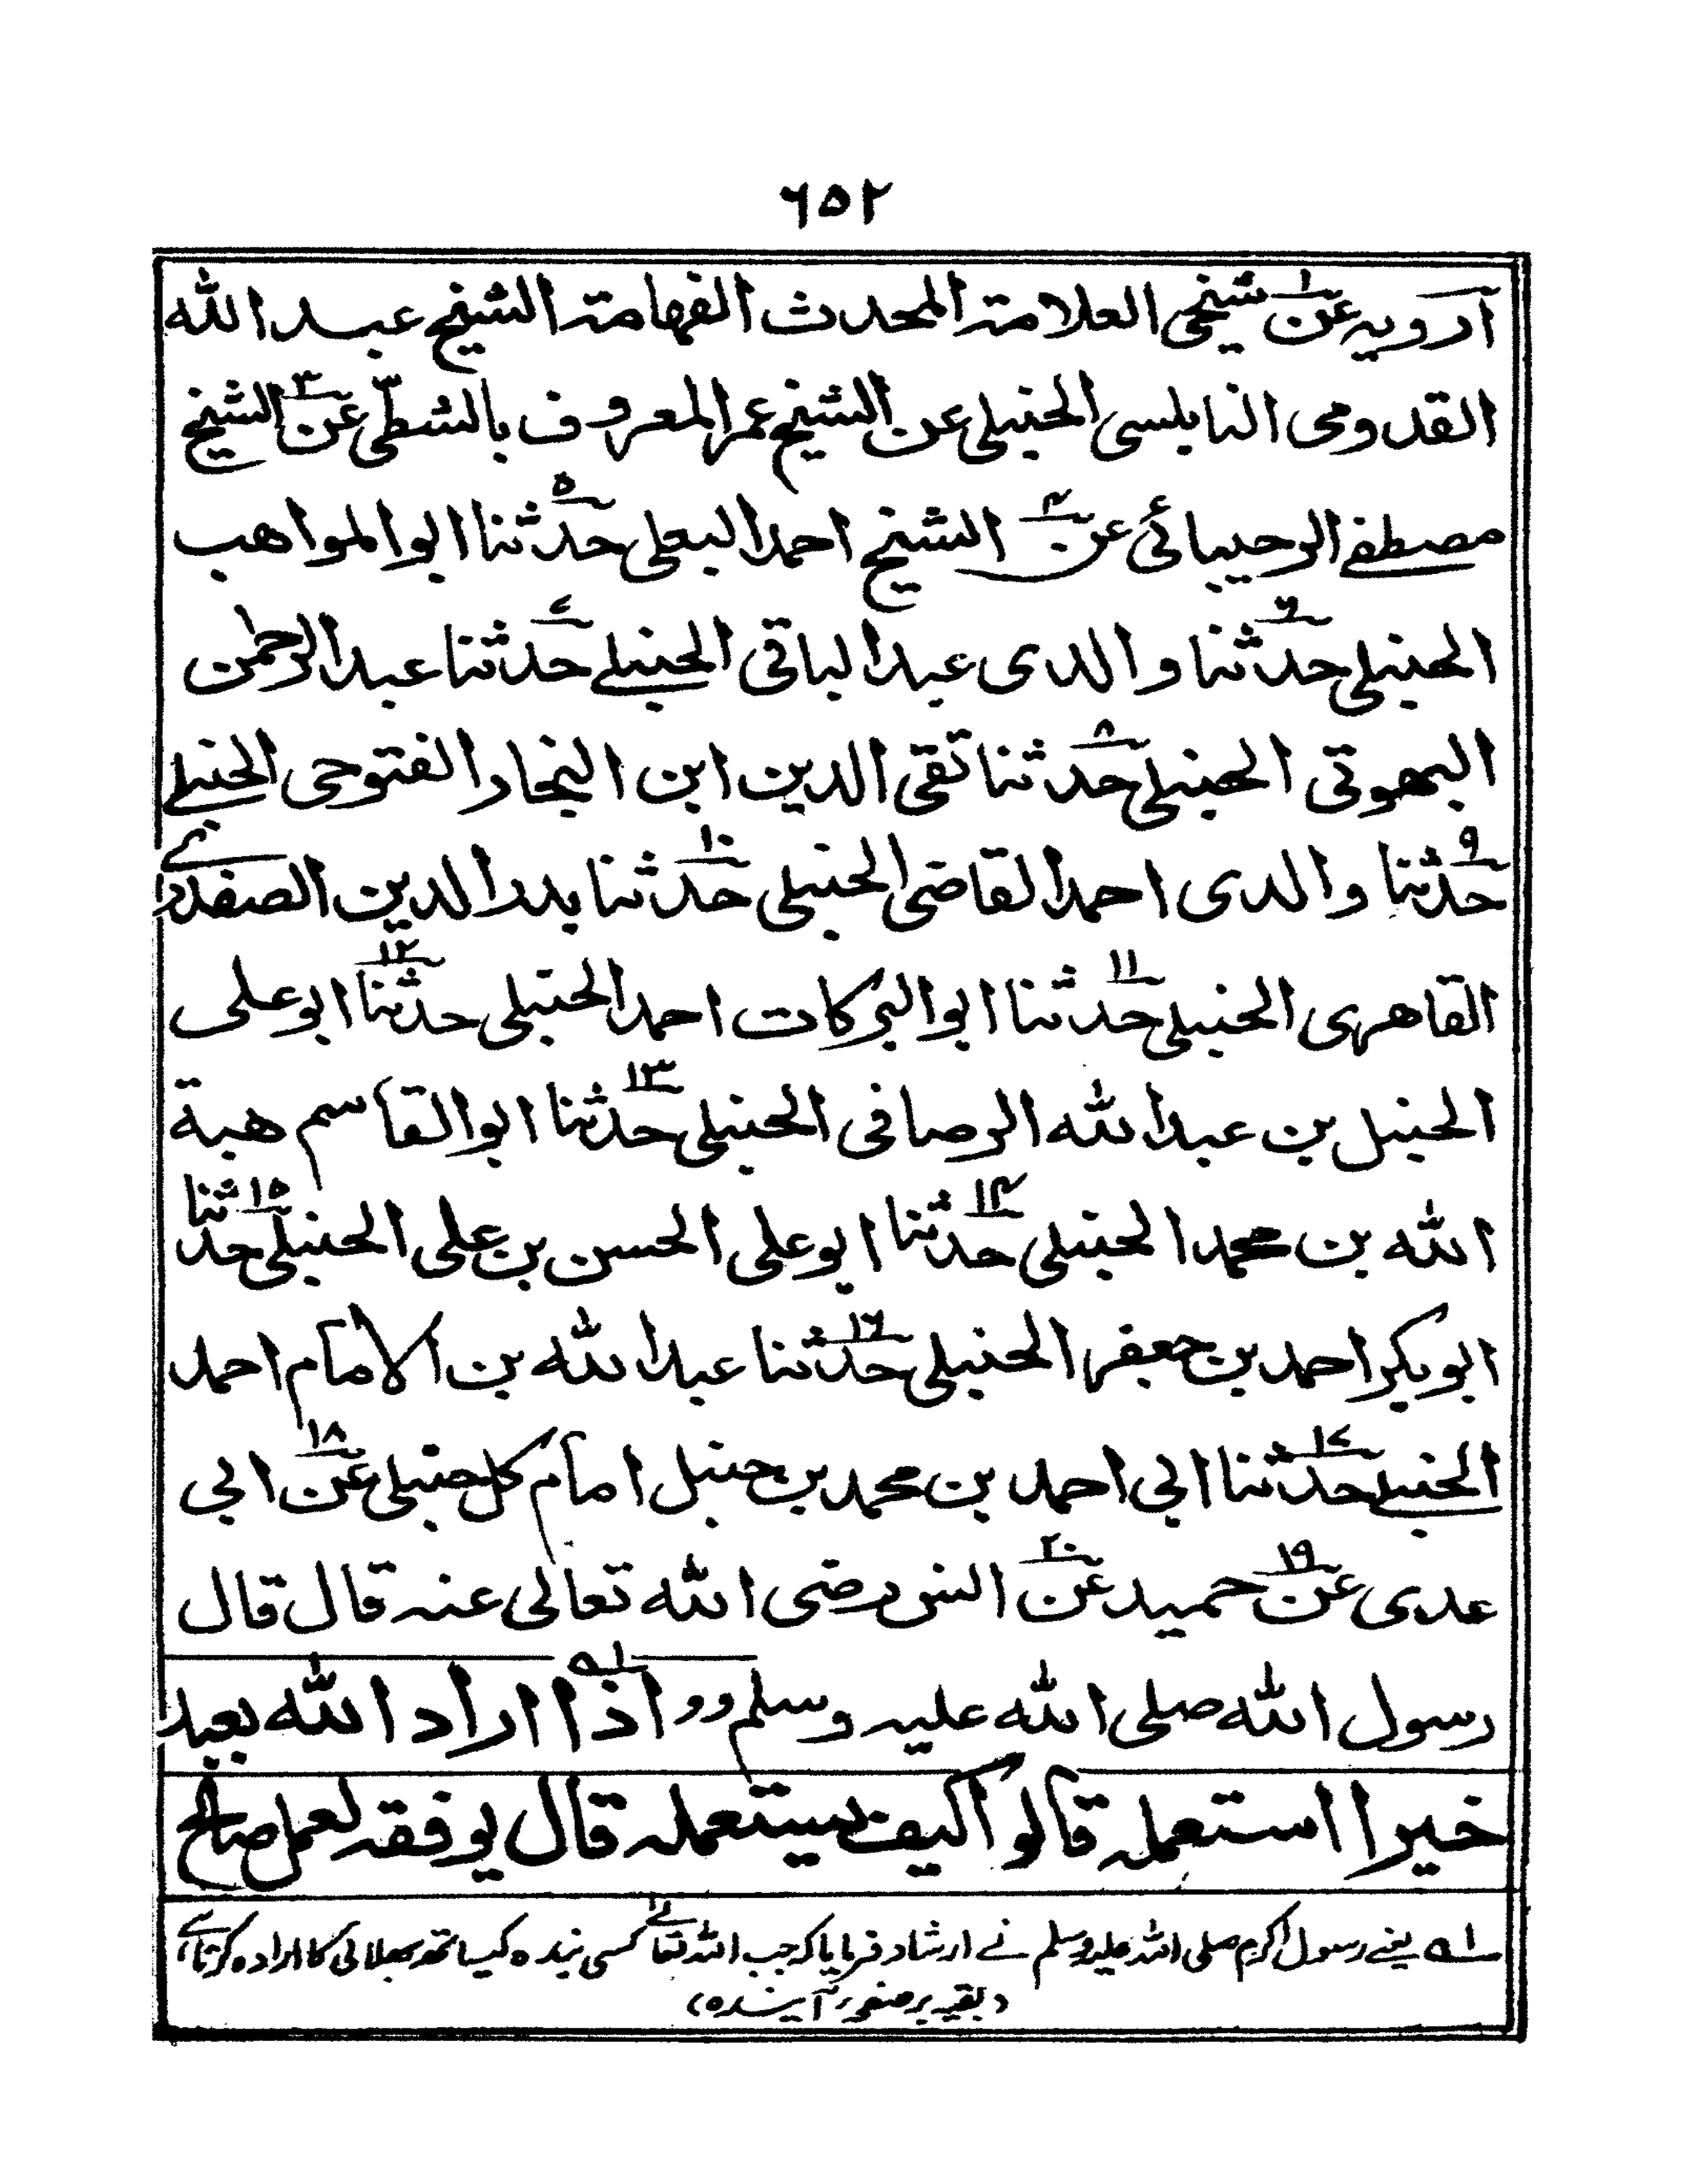 ٦٥٢
ارويه عن۱ شيخى العلامة المحدث الفهامة الشيخ عبد الله
القدومى النابلسى الحنبلى عن الشيخ عمر المعروف بالشطّى عن۳ الشيخ
مصطفے الرحيبائى عن۴ الشيخ احمد البعلى حدثنا۵ ابوالمواهب
الحنبلى حدثنا۶ والدى عبد الباقى الحنبلے حدثنا۷ عبد الرحمٰن
البهوتى الحنبلى حدثنا۸ تقى الدين ابن النجار الفتوحى الحنبلے
حدثنا۹ والدى احمد القاضى الحنبلى حدثنا۱۰ بدر الدين الصفدے
القاهرى الحنبلى حدثنا۱۱ ابوالبركات احمد الحنبلى حدثنا۱۲ ابوعلى
الحنبل بن عبد الله الرصافى الحنبلى حدثنا۱۳ ابوالقاسم هبة
الله بن محمد الحنبلى حدثنا۱۴ ابوعلى الحسن بن على الحنبلى حدثنا۱۵
ابوبكر احمد بن جعفر الحنبلى حدثنا۱۶ عبد الله بن الامام احمد
الحنبلے حدثنا۱۷ ابى احمد بن محمد بن حنبل امام كل حنبلى عن۱۸ ابى
عدى عن۱۹ حميد عن۲۰ انس رضى الله تعالى عنه قال قال
رسول الله صلى الله عليه وسلم وو اذا۱ اراد الله بعبد
خيرا استعمله قالوا كيف يستعمله قال يوفقه لعمل صالح
۱ یعنے رسول اکرم صلی اللہ علیہ وسلم نے ارشاد فرمایا کہ جب اللہ تعالےٰ کسی بندہ کیساتھ بھلائی کا ارادہ کرتا ہے
(بقیہ بر صفحہ آیندہ)